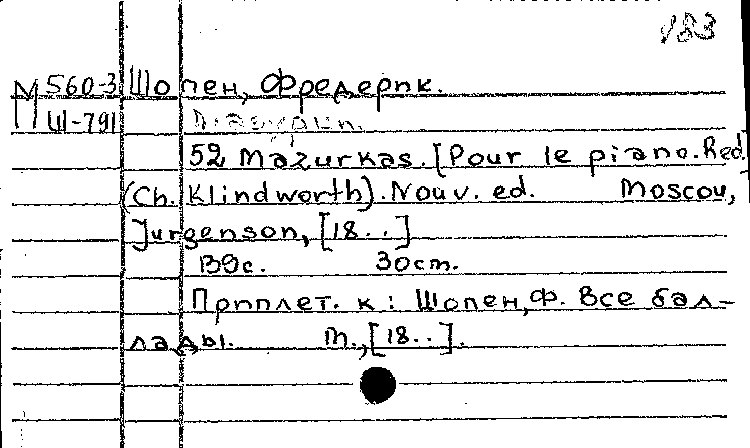 183
М 560-3 Шопен, Фредерик.
Ш-791 Мазурки.
52 Mazurkas. [Pour le piano. Red.
(Ch. Klindworth). Nouv. ed. Moscou,
Jurgenson, [18..]
139с. 30cm.
Припплет. к: Шопен, Ф. Все бал-
лады. М., [18..].